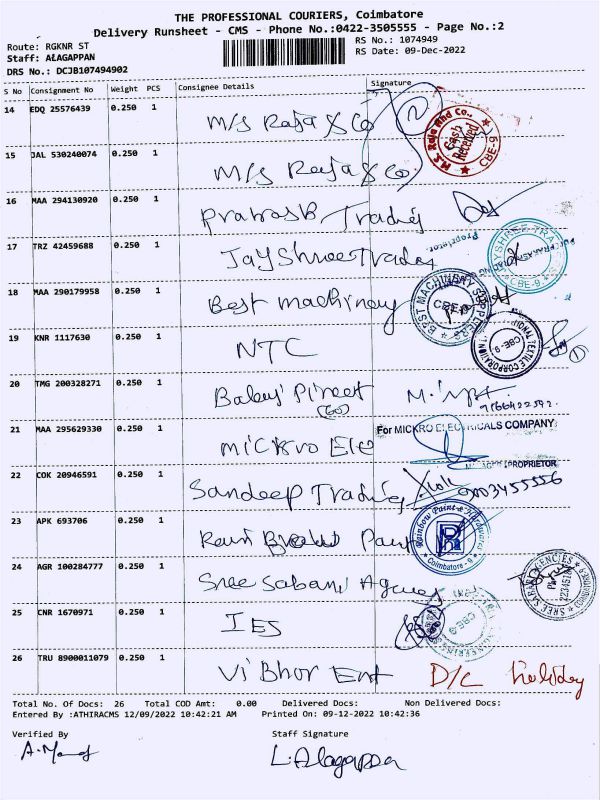 THE PROFESSIONAL COURIERS, Coimbatore
Delivery Runsheet - CMS - Phone No.:0422-3505555 - Page No.:2
Route: RGKNR ST
RS No.: 1074949
Staff: ALAGAPPAN
RS Date: 09-Dec-2022
DRS No.: DCJB107494902
S No Consignment No Weight PCS Consignee Details Signature
14 EDQ 25576439 0.250 1 M/s Raja & Co
M.S. Raja And Co., Cash Received CBE-9
15 JAL 530240074 0.250 1 M/s Raja & Co
16 MAA 294130920 0.250 1 Prakash Trading
Proprietor
17 TRZ 42459688 0.250 1 Jay Shree Trading
JAYSHREE TRA CBE-9
18 MAA 290179958 0.250 1 Best machinery
BEST MACHINERY SUPPLIERS CBE-9
19 KNR 1117630 0.250 1 NTC
NATIONAL TEXTILE CORPORATION CBE-9
20 TMG 200328271 0.250 1 Balaji
21 MAA 295629330 0.250 1 mickro Ele
For MICKRO ELECTRICALS COMPANY
PROPRIETOR
22 COK 20946591 0.250 1 Sandeep Trading 9003455556
23 APK 693706 0.250 1 Paint
Rainbow Paint & Hardwares Coimbatore - 9
24 AGR 100284777 0.250 1 Sree Sabari Agency
25 CNR 1670971 0.250 1 IES
CBE-9
26 TRU 8900011079 0.250 1 Vibhor Ent D/C holiday
Total No. Of Docs: 26 Total COD Amt: 0.00 Delivered Docs: Non Delivered Docs:
Entered By :ATHIRACMS 12/09/2022 10:42:21 AM Printed On: 09-12-2022 10:42:36
Verified By Staff Signature
L. Alagappan